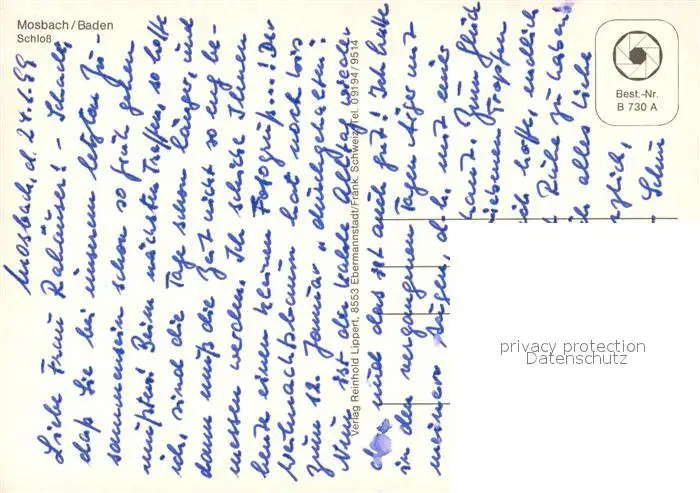 Mosbach/Baden
Schloß
Best.-Nr.
B 730 A
Verlag Reinhold Lippert, 8553 Ebermannstadt/Fränk. Schweiz, Tel. 09194/9514
Mosbach, d. 24.1.89
Liebe Frau Rahäuser! – Schade,
daß Sie bei unserem letzten Zu-
sammensein schon so früh gehen
mußten! Beim nächsten Treffen, so hoffe
ich, sind die Tage schon länger, und
dann muß die Zeit nicht so eng be-
messen werden. Ich schicke Ihnen
heute einen kleinen Fotogruß...! Der
Weihnachtsbaum hat noch bis
zum 12. Januar „durchgehalten“!
Nun ist der kalte Alltag wieder
und das ist auch gut! Ich hatte
in den vergangenen Tagen Ärger mit
meinen Augen, d.h. mit einer
Hand. Zum Glück
Tropfen
ich hoffe, endlich
Ruhe zu haben!
alles Liebe
privacy protection
Datenschutz